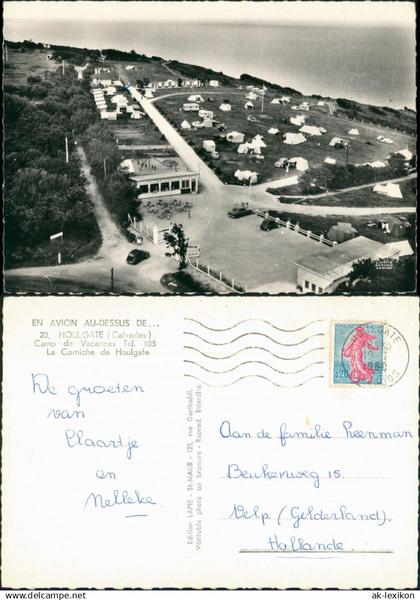 EN AVION AU-DESSUS DE...
20, HOULGATE (Calvados)
Camp de Vacances Tel. 105
La Corniche de Houlgate
De groeten
van
Klaartje
en
Nelleke.
Edition LAPIE - St-MAUR - 123, rue Garibaldi.
Véritable photo au bromure - Reprod. Interdite.
0,20
Aan de familie Peenman
Beukenweg 15.
Velp. (Gelderland).
Hollande.
ak-lexikon.com
© www.ak-lexikon.de